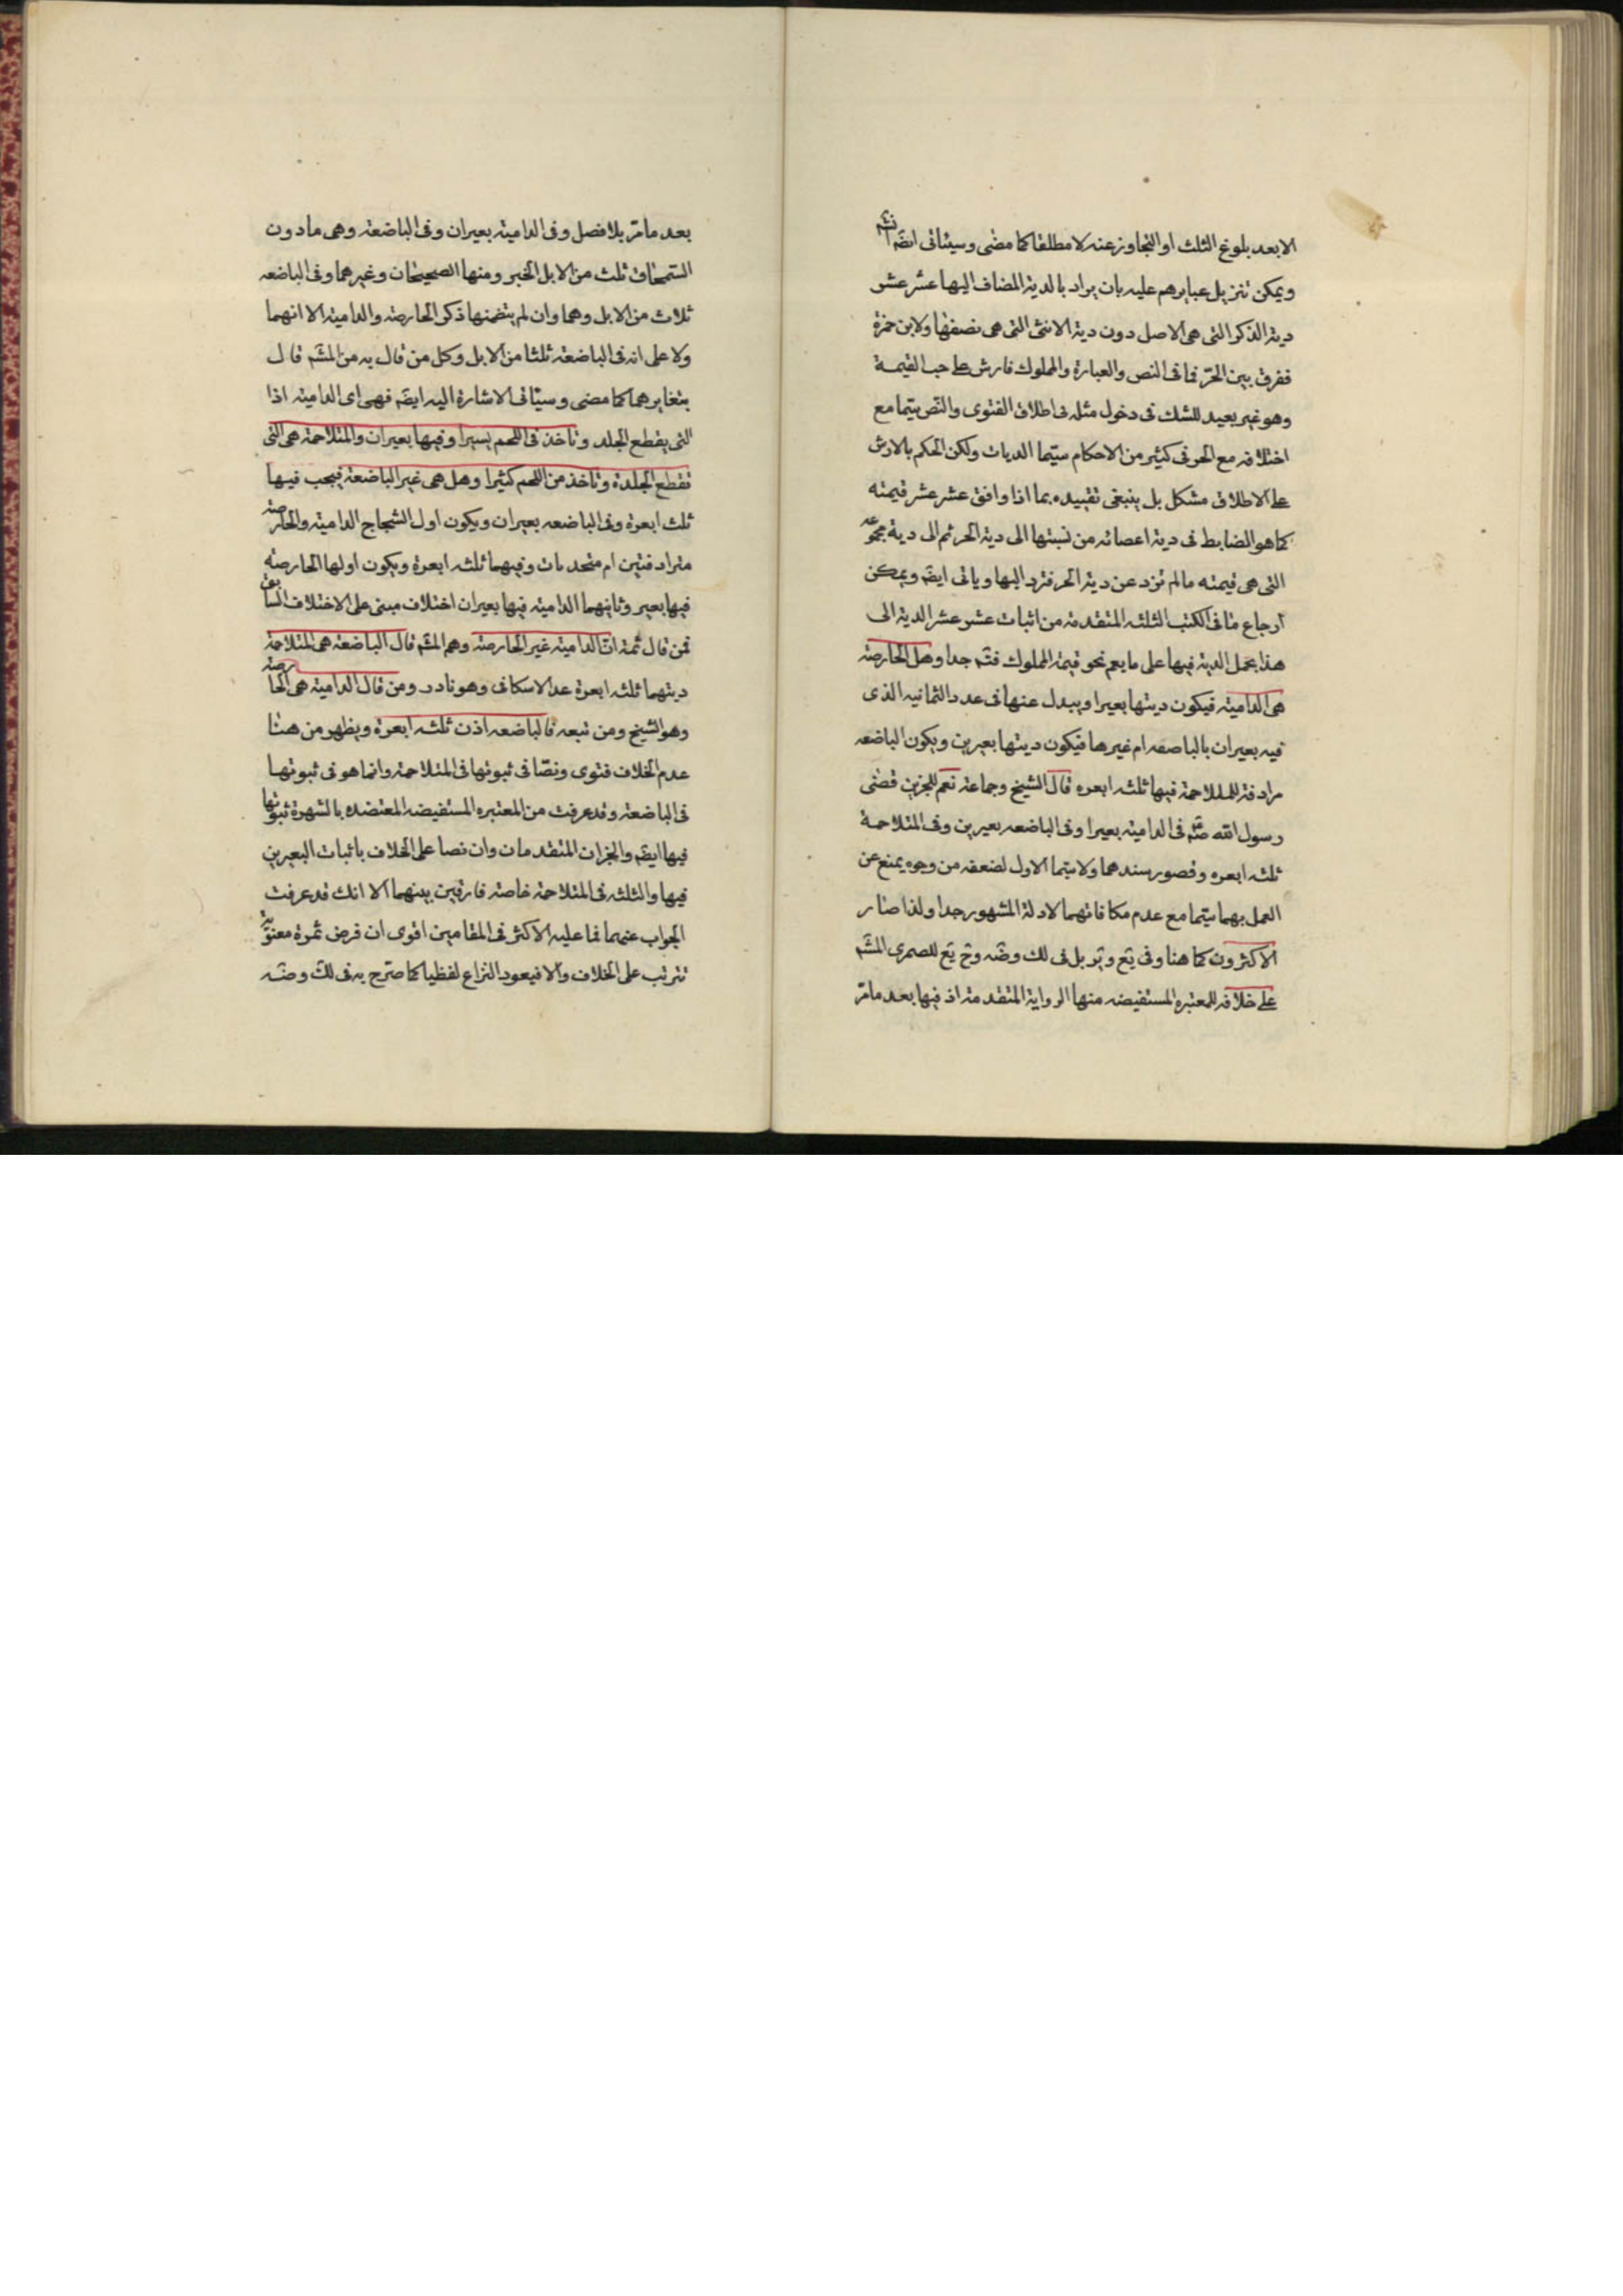 الا بعد بلوغ الثلث او التجاوز عنه لا مطلقا كما مضى وسيئاتى ايضَم انشَه
ويمكن تنزيل عبايرهم عليه بان يراد بالدية المضاف اليها عشر عشر
دية الذكر التى هى الاصل دون دية الانثى التى هى نصفها ولابن حمزة
ففرق بين الحرّ فما فى النص والعبارة والمملوك فارش على حسب القيمة
وهو غير بعيد للشك فى دخول مثله فى اطلاق الفتوى والنّص سيّما مع
اختلافه مع الحر فى كثير من الاحكام سيّما الديات ولكن الحكم بالارش
على الاطلاق مشكل بل ينبغى تقييده بما اذا وافق عشر عشر قيمته
كما هو الضابط فى دية اعضائه من نسبتها الى دية الحر ثم الى دية مجموعه
التى هى قيمته ما لم تزد عن دية الحر فترد اليها وياتى ايضَم ويمكن
ارجاع ما فى الكتب الثلثه المتقدمة من اثبات عشر عشر الدية الى
هذا بحمل الدية فيها على ما يعم نحو قيمة المملوك فتَم جدا وهل الحارصة
هى الدامية فيكون ديتها بعيرا ويبدل عنها فى عدد الثمانيه الذى
فيه بعيران بالباصعه ام غيرها فيكون ديتها بعيرين ويكون الباضعه
مرادفة للمتلاحمة فيها ثلثه ابعره قال الشيخ وجماعة نعم للخبرين قضى
رسول الله صَم فى الداميه بعيرا وفى الباضعه بعيرين وفى المتلاحمة
ثلثه ابعره وقصور سندهما ولا سيّما الاول لضعفه من وجوه يمنع عن
العمل بهما سيّما مع عدم مكافاتهما لادلة المشهور جدا ولذا صار
الاكثرون كما هنا وفى يَع وتَر بل فى لك وضَه وح يَع للصمرى المشَم
على خلافه للمعتبره المستفيضه منها الرواية المتقدمة اذ فيها بعد مامرّ
بعد مامرّ بلا فصل وفى الدامية بعيران وفى الباضعة وهى ما دون
السّمحاق ثلث من الابل الخبر ومنها الصحيحان وغيرهما وفى الباضعه
ثلاث من الابل وهما وان لم يتضمنها ذكر الحارصة والدامية الا انهما
دلا على انه فى الباضعة ثلثا من الابل وكل من قال به من المشَم قال
بتغايرهما كما مضى وسيئاتى الاشارة اليه ايضَم فهى اى الدامية اذا
التى يقطع الجلد وتاخذ فى اللحم يسيرا وفيها بعيران والمتلاحمة هى التى
تقطع الجلدة وتاخذ من اللحم كثيرا وهل هى غير الباضعة فيجب فيها
ثلث ابعرة وفى الباضعه بعيران ويكون اول الشجاج الدامية والحارصة
مترادفتين ام متحدمات وفيهما ثلثه ابعرة ويكون اولها الحارصته
فيها بعير وثانيهما الدامية فيها بعيران اختلاف مبنى على الاختلاف السابق
فمن قال ثمة انّ الدامية غير الحارصة وهم المشَم قال الباضعة هى المتلاحمة
ديتهما ثلثه ابعرة عدا الاسكافى وهو نادر ومن قال الدامية هى الحارصة
وهو الشيخ ومن تبعه فالباضعه اذن ثلثه ابعرة ويظهر من هنا
عدم الخلاف فتوى ونصّا فى ثبوتها فى المتلاحمة وانما هو فى ثبوتها
فى الباضعة وقد عرفت من المعتبره المستفيضه المعتضده بالشهرة ثبوتها
فيها ايضَم والخبران المتقدمان وان نصا على الخلاف باثبات البعيرين
فيها والثلثه فى المتلاحمة خاصته فارقين بينهما الا انك قد عرفت
الجواب عنهما فما عليه الاكثر فى المقامين اقوى ان فرض ثمرة معنويّة
تترتب على الخلاف والا فيعود النزاع لفظيا كما صرّح به فى لك وضَه